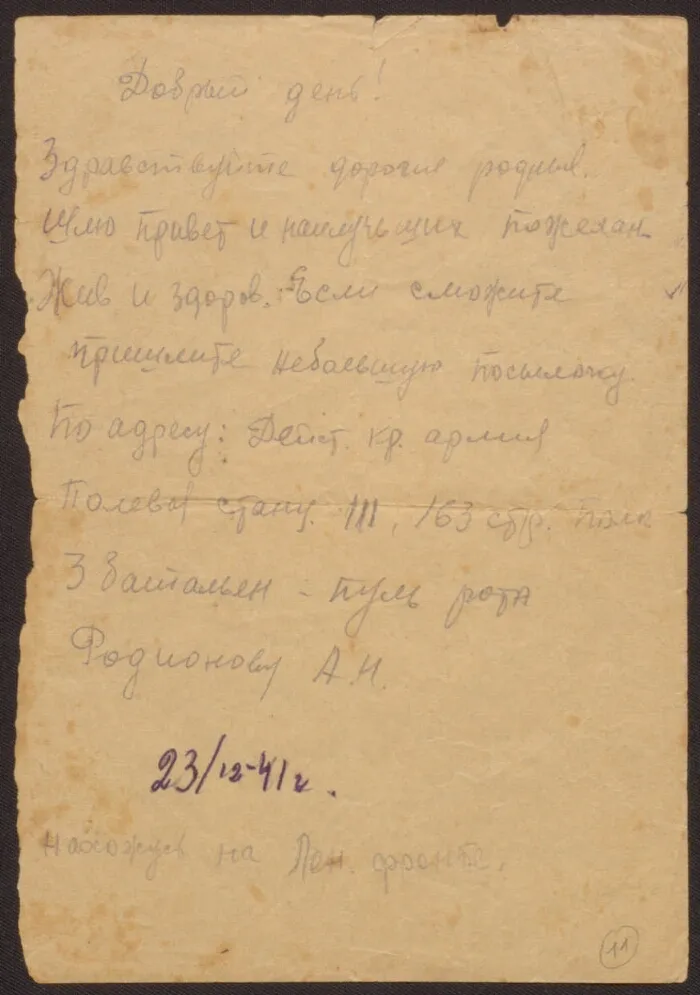 Добрый день!
Здравствуйте дорогие родные.
Шлю привет и наилучьших пожелан
Жив и здоров. Если сможите
пришлите небольшую посылочку
По адресу: Дейст. кр. армия
Полевой стану. 111, 163 стр. полк
3 батальен - пуль рота
Родионову А.Н.
23/12-41 г.
нахожусь на Лен. фронте.
11